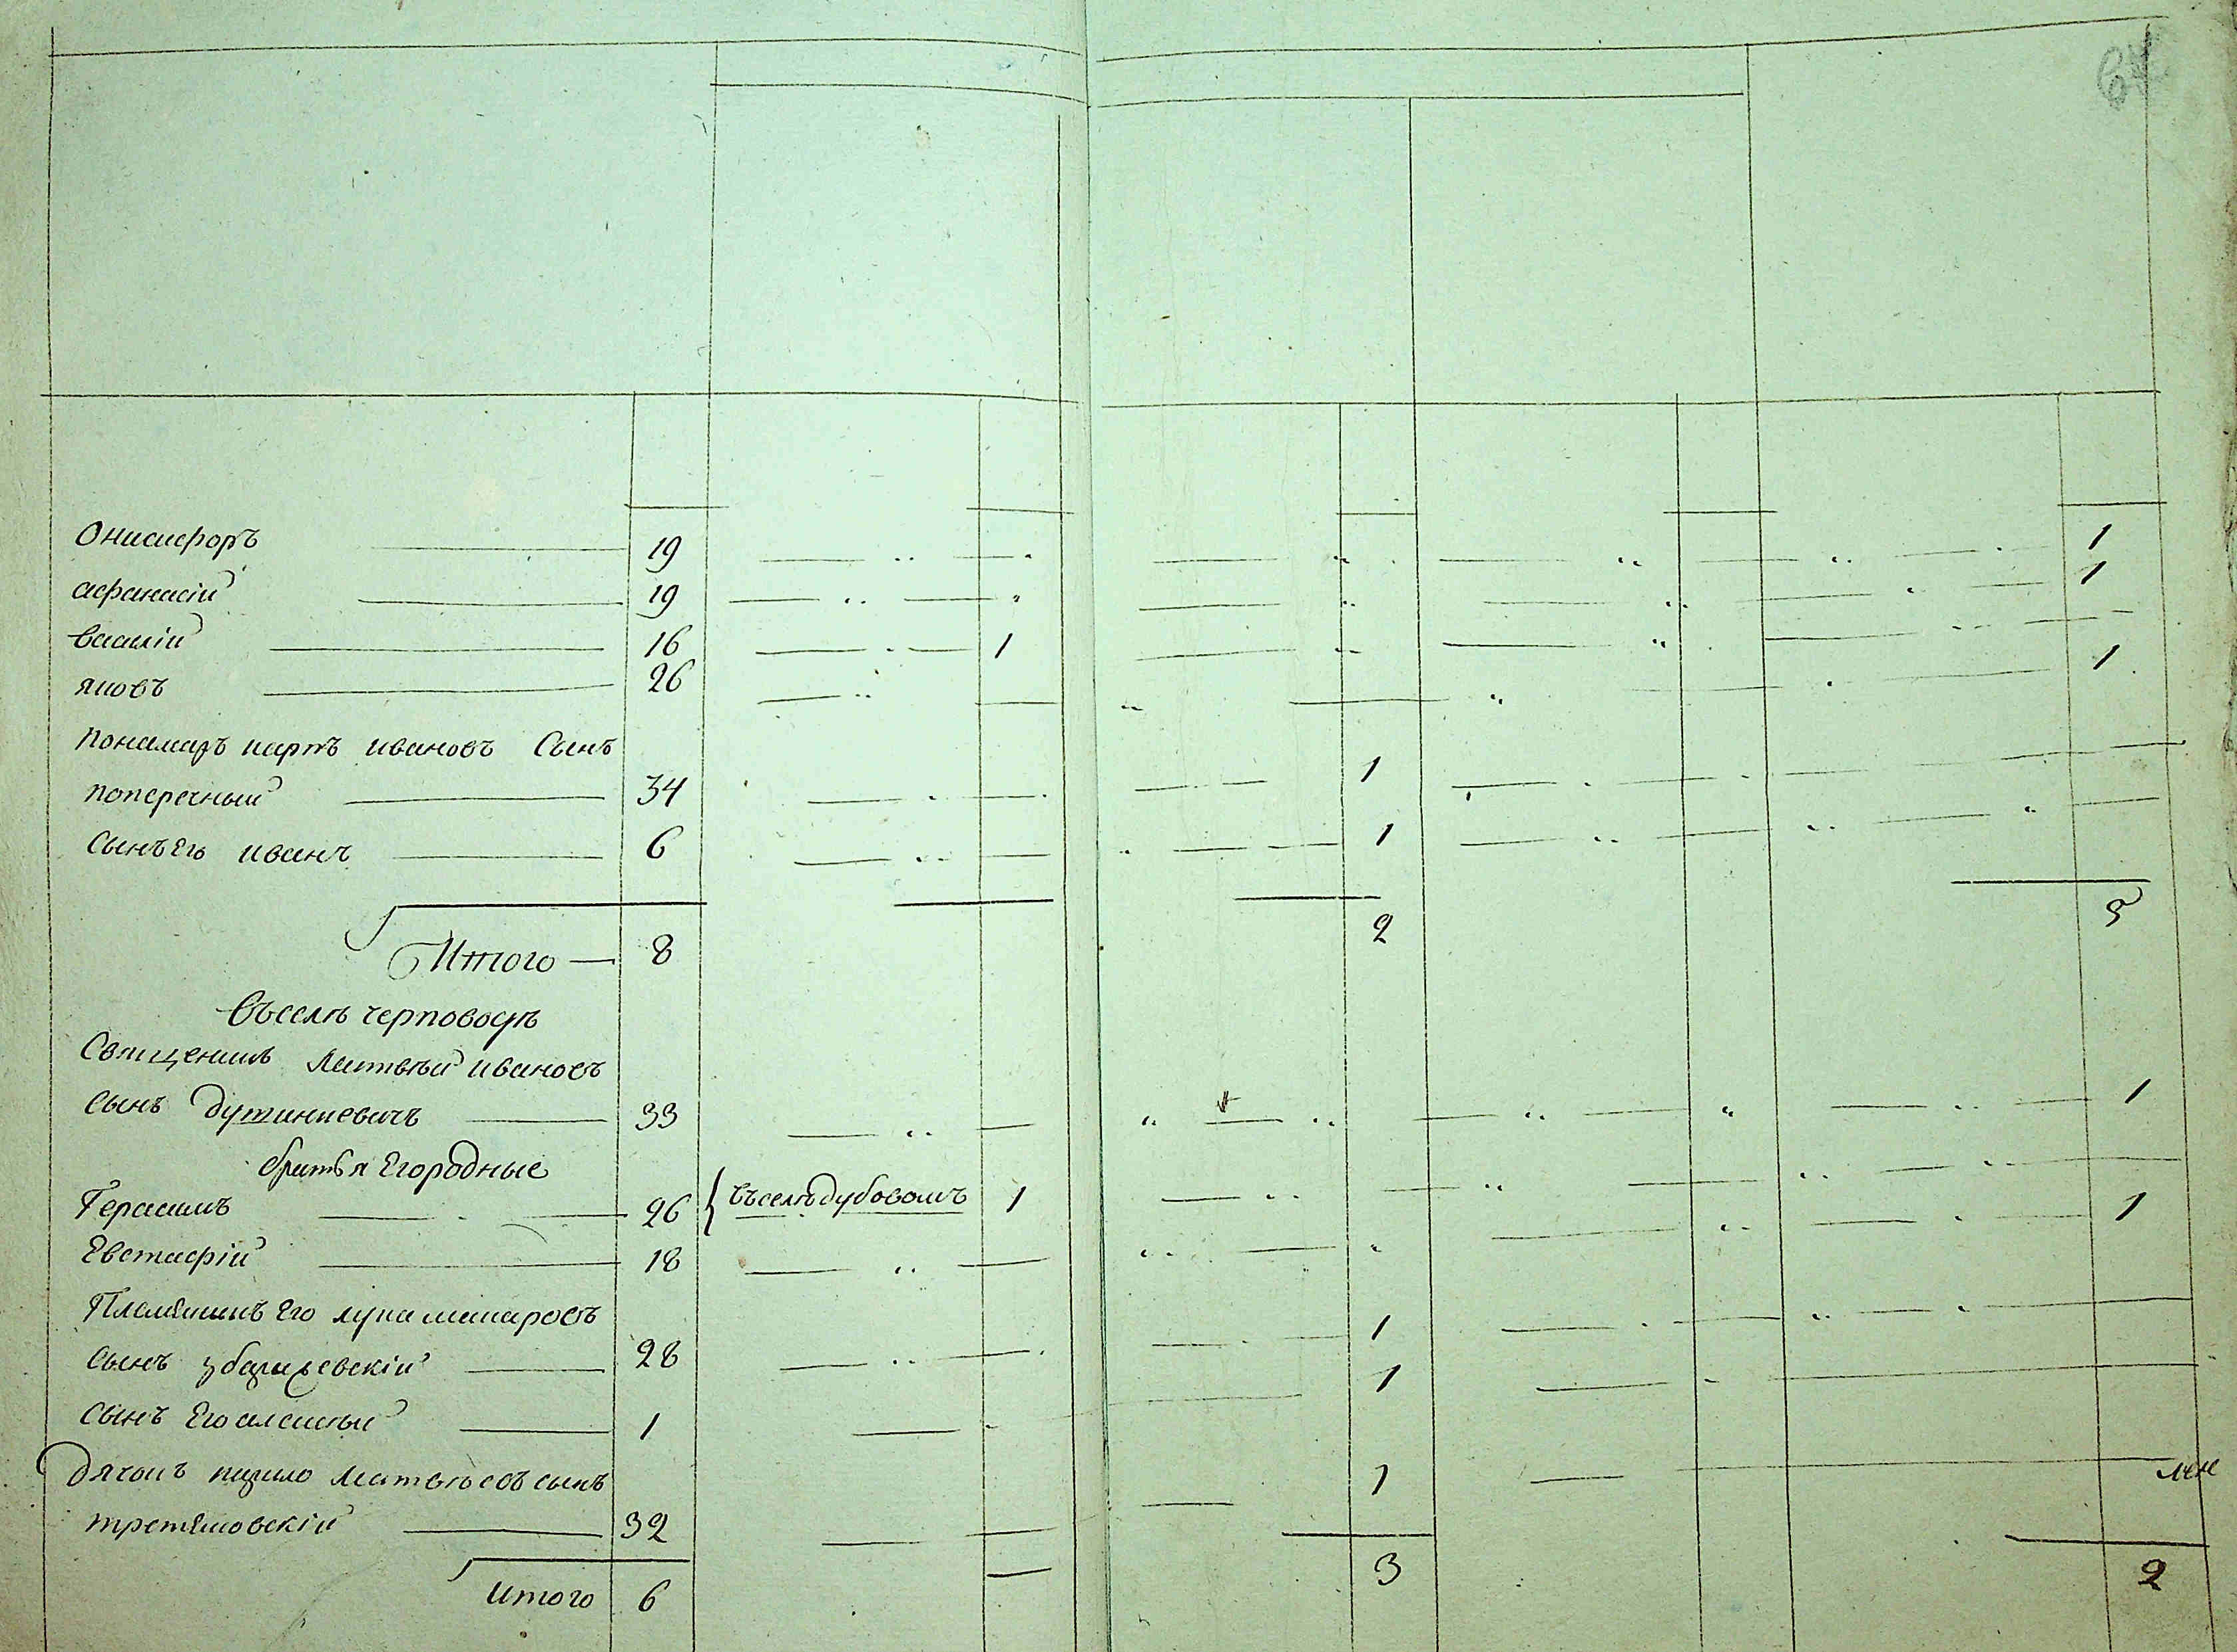 64
Онисифоръ 19 1
афанасіи 19 1
василіи 16 1
яковъ 26 1
пономаръ карпъ ивановъ Сынъ
поперечныи 34 1
Сынъ Его иванъ 6 1
Итого 8 2 5
Въселѣ черповодѣ
Священикъ Матвѣи ивановъ
Сынъ Дутинкевичъ 33 1
братья Егородные
Герасимъ 26 въселѣ дубовомъ 1
Евстафіи 18 1
Племяникъ Его лука макаровъ
Сынъ збаражевскіи 28 1
Сынъ Его алексѣи 1 1
Дячокъ кирило Матвѣевъ сынъ
третяковскіи 32 1
Итого 6 3 2